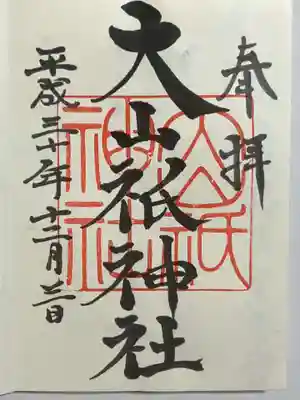 奉拝
大山祇神社
平成三十年十二月二日
大山祇
神社